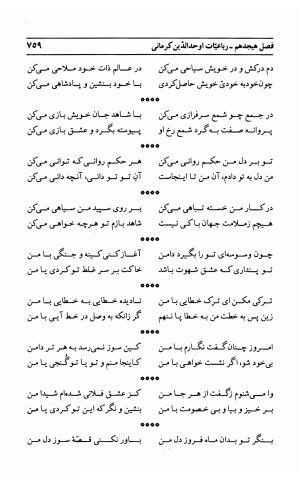 فصل هیجدهم ـ رباعیّات اوحدالدّین کرمانی ۷۵۹
دم درکش و در خویش سیاحی می‌کن در عالم ذات خود ملاحی می‌کن
چون‌خودبه خودی خویش حاصل‌کردی با خود بنشین و پادشاهی می‌کن
****
در جمع چو شمع سرفرازی می‌کن با شاهد جان خویش بازی می‌کن
پروانه صفت به گرد شمع رخ او پیوسته بگرد و عشق بازی می‌کن
****
تو بر دل من حکم روانی می‌کن هر حکم روانی که توانی می‌کن
من دل به تو دادم، آن من تا اینجاست آن تو تو دانی، آنچه دانی می‌کن
****
در کار من خسته تباهی می‌کن بر روی سپید من سیاهی می‌کن
هیچم زملامت جهان باکی نیست شاهد بازم تو هرچه خواهی می‌کن
****
چون وسوسه‌ای تو را بگیرد دامن آغاز کنی کینه و جنگی با من
تو پنداری که عشق شهوت باشد خاکت بر سر غلط تو کردی یا من
****
ترکی مکن ای ترک خطایی با من نادیده خطایی به خطایی با من
زین پس به خطت من به خطا پا ننهم گر زانکه به وصل در خط آیی با من
****
امروز چنان گفت نگارم با من کین سوز نمی‌رسد به هر تر دامن
بی‌خود شو، اگر نشست خواهی با من کاینجا منم و تو یا تو گنجی یا من
****
وا می‌شنوم زگفت از هر جا من کز عشق فلانی شده‌ام شیدا من
بر خیز و بیا و بی خصومت با من بنشین و نگر که این تو کردی یا من
****
بنگر تو بدان ماه فروز دل من باور نکنی قصّهٔ سوز دل من